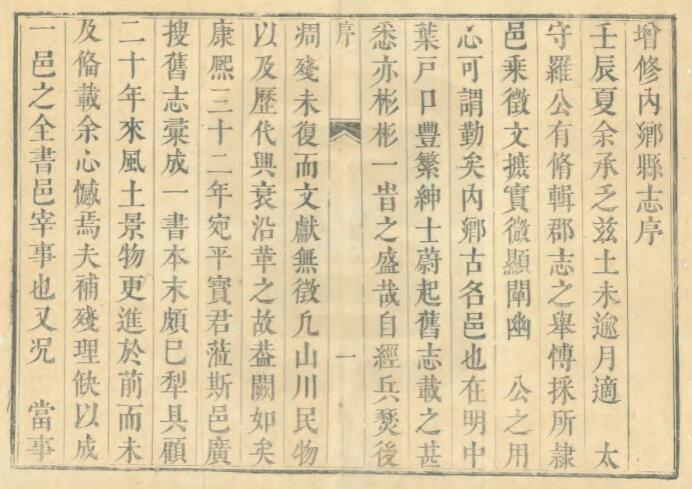 增修內鄉縣志序
壬辰夏余承乏兹土未逾月適　太
守羅公有脩輯郡志之舉愽採所隸
邑乘徵文摭實微顯闡幽　公之用
心可謂勤矣內鄉古名邑也在明中
葉戸口豐繁紳士蔚起舊志載之甚
悉亦彬彬一旹之盛哉自經兵燹後
序　一
凋殘未復而文獻無徵凢山川民物
以及歷代興衰沿革之故葢闕如矣
康熙三十二年宛平寳君蒞斯邑廣
搜舊志彙成一書本末頗巳犁具顧
二十年來風土景物更進於前而未
及俻載余心憾焉夫補殘理缺以成
一邑之全書邑宰事也又况　當事